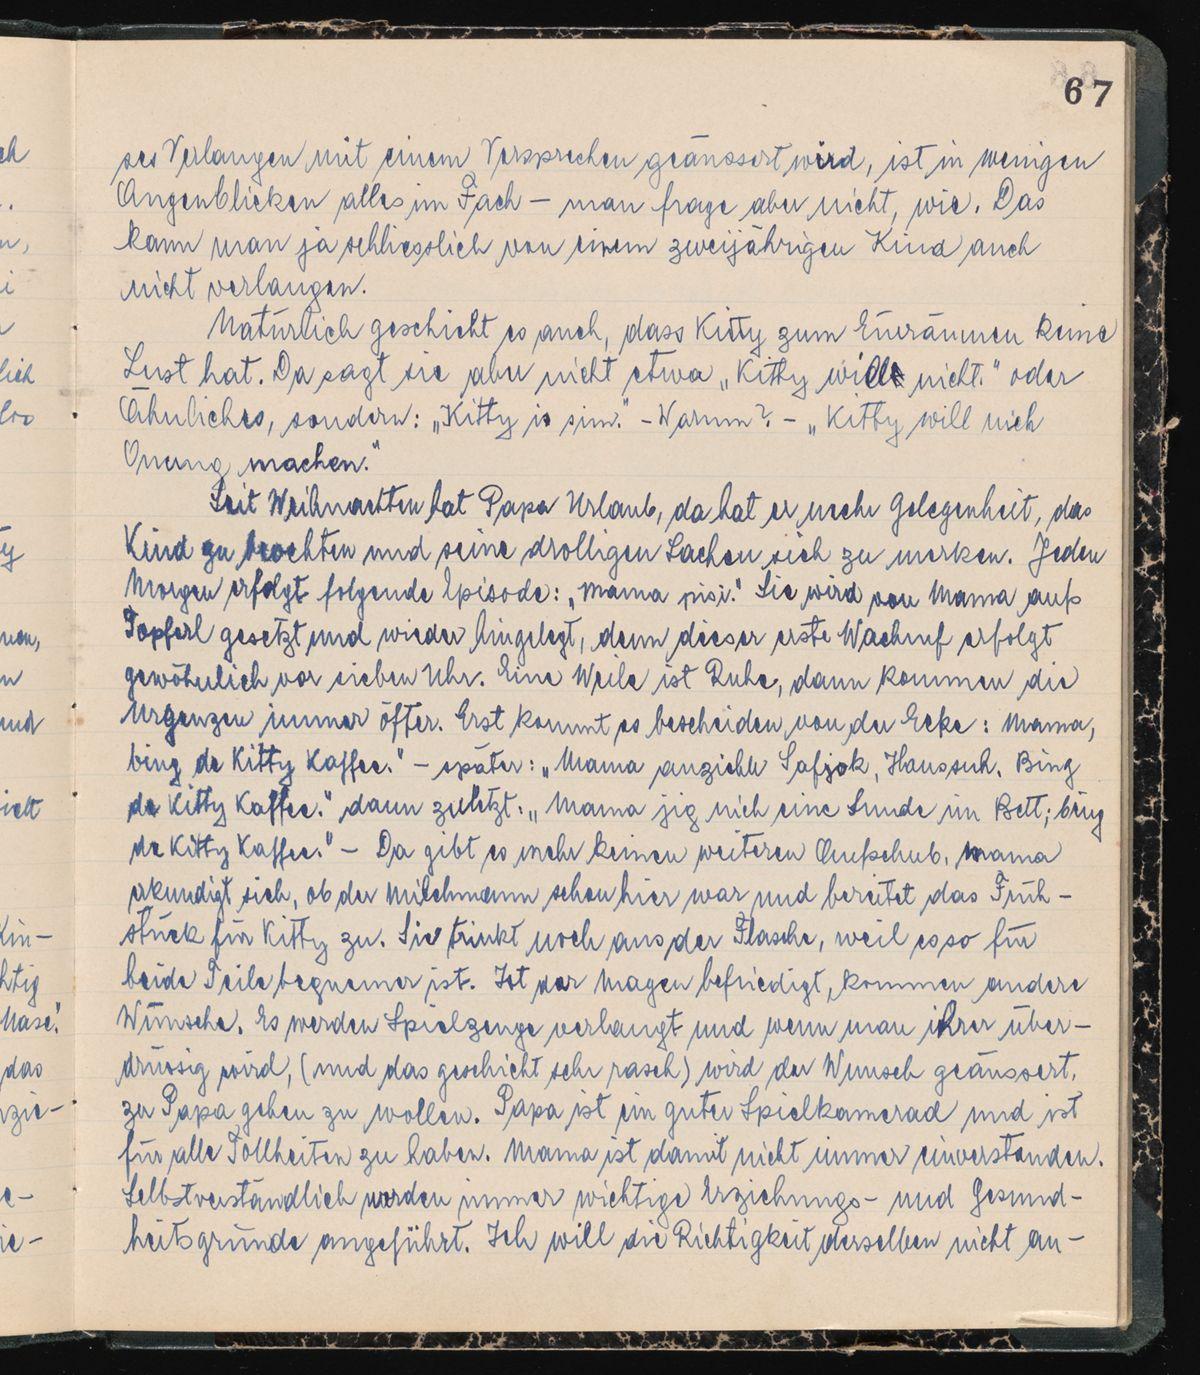 67
ses Verlangen mit einem Versprechen geäussert wird, ist in wenigen
Augenblicken alles im Fach — man frage aber nicht, wie. Das
kann man ja schliesslich von einem zweijährigen Kind auch
nicht verlangen.
Natürlich geschieht es auch, dass Kitty zum Einräumen keine
Lust hat. Da sagt sie aber nicht etwa „Kitty will nicht." oder
Ähnliches, sondern: „Kitty is sim." — Warum? — „Kitty will nich
Onung machen."
Seit Weihnachten hat Papa Urlaub, da hat er mehr Gelegenheit, das
Kind zu beochten und seine drolligen Sachen sich zu merken. Jeden
Morgen erfolgt folgende Episode: „Mama pisi." Sie wird von Mama aufs
Topferl gesetzt und wieder hingelegt, denn dieser erste Wachruf erfolgt
gewöhnlich vor sieben Uhr. Eine Weile ist Ruhe, dann kommen die
Urgenzen immer öfter. Erst kommt es bescheiden von der Ecke: Mama,
bing de Kitty Kaffee." — später: „Mama anziehn Safjok, Haussuh. Bing
de Kitty Kaffee." dann zuletzt: „Mama jig nich eine Sunde im Bett; bing
de Kitty Kaffee." — Da gibt es mehr keinen weiteren Aufschub. Mama
erkundigt sich, ob der Milchmann schon hier war und bereitet das Früh-
stück für Kitty zu. Sie trinkt noch aus der Flasche, weil es so für
beide Teile bequemer ist. Ist der Magen befriedigt, kommen andere
Wünsche. Es werden Spielzeuge verlangt und wenn man ihrer über-
drüssig wird, (und das geschieht sehr rasch) wird der Wunsch geäussert,
zu Papa gehen zu wollen. Papa ist ein guter Spielkamerad und ist
für alle Tollheiten zu haben. Mama ist damit nicht immer einverstanden.
Selbstverständlich werden immer wichtige Erziehungs- und Gesund-
heitsgründe angeführt. Ich will die Richtigkeit derselben nicht an-